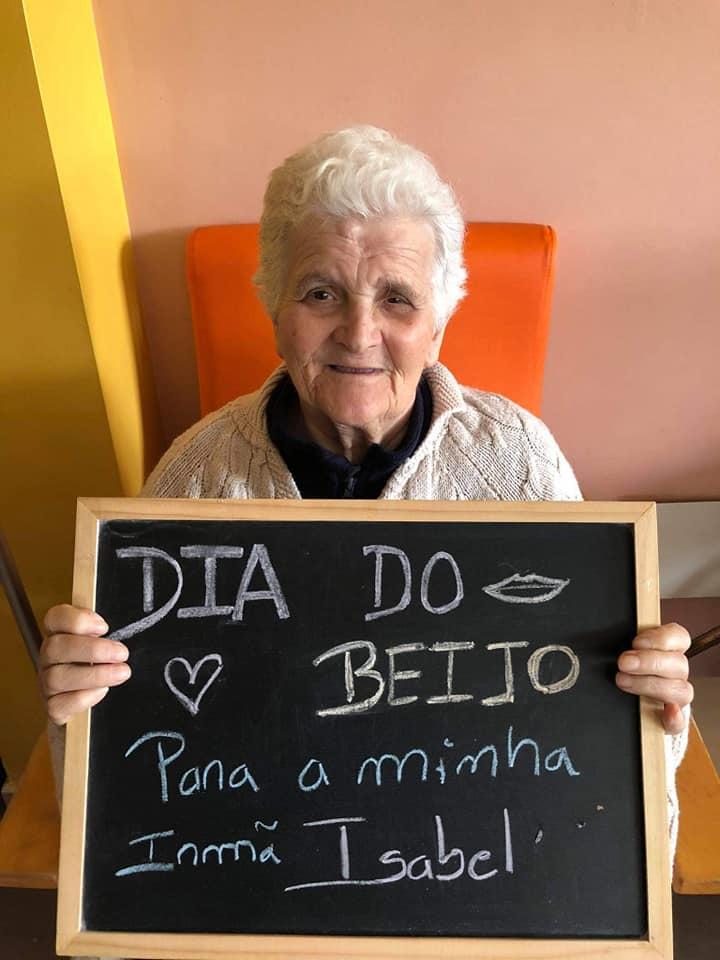 DIA DO
BEIJO
Para a minha
Irmã Isabel